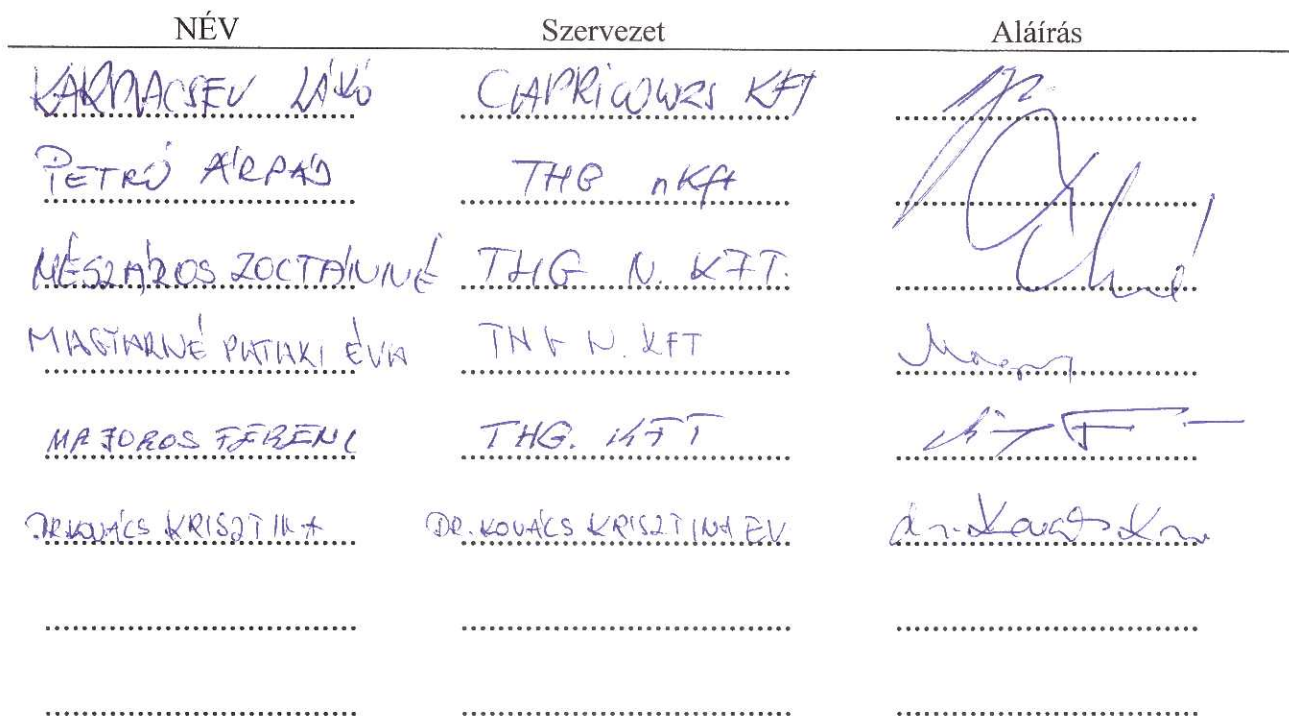 NÉV Szervezet Aláírás
KARDACSEV LÁSZLÓ KFT
PETRÓ ÁRPÁD THG nKft
MÉSZÁROS ZOLTÁNNÉ THG N. KFT.
MAGYARNÉ PATAKI ÉVA THG N. KFT
MAJOROS FERENC THG. KFT
DR. KOVÁCS KRISZTINA DR. KOVÁCS KRISZTINA EV. dr. Kovács